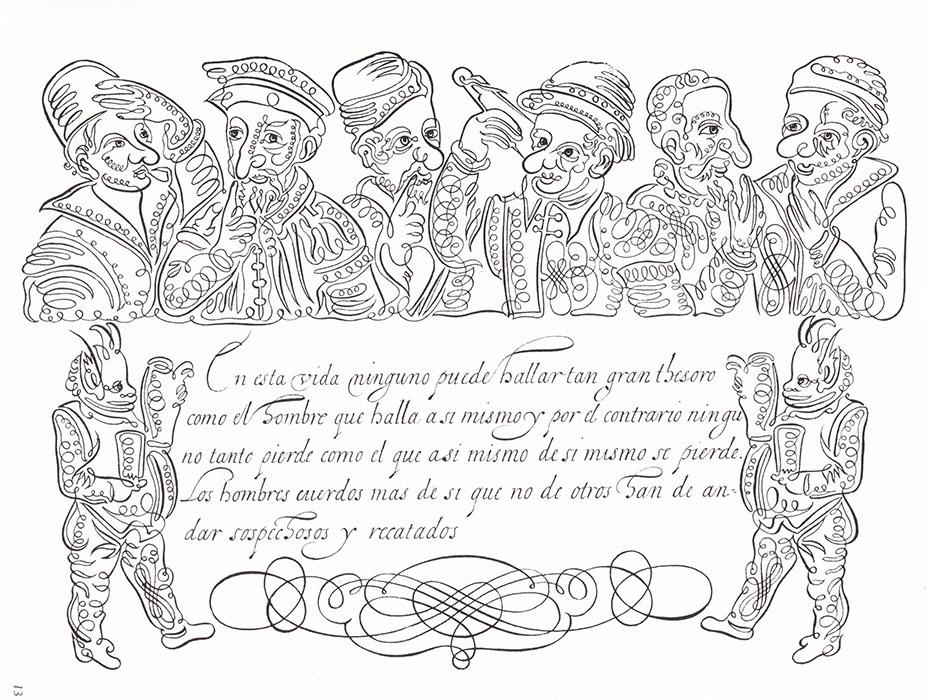 En esta vida ninguno puede hallar tan gran thesoro
como el hombre que halla a si mismo y por el contrario ningu
no tanto pierde como el que asi mismo de si mismo se pierde.
Los hombres cuerdos mas de si que no de otros han de an-
dar sospechosos y recatados
13